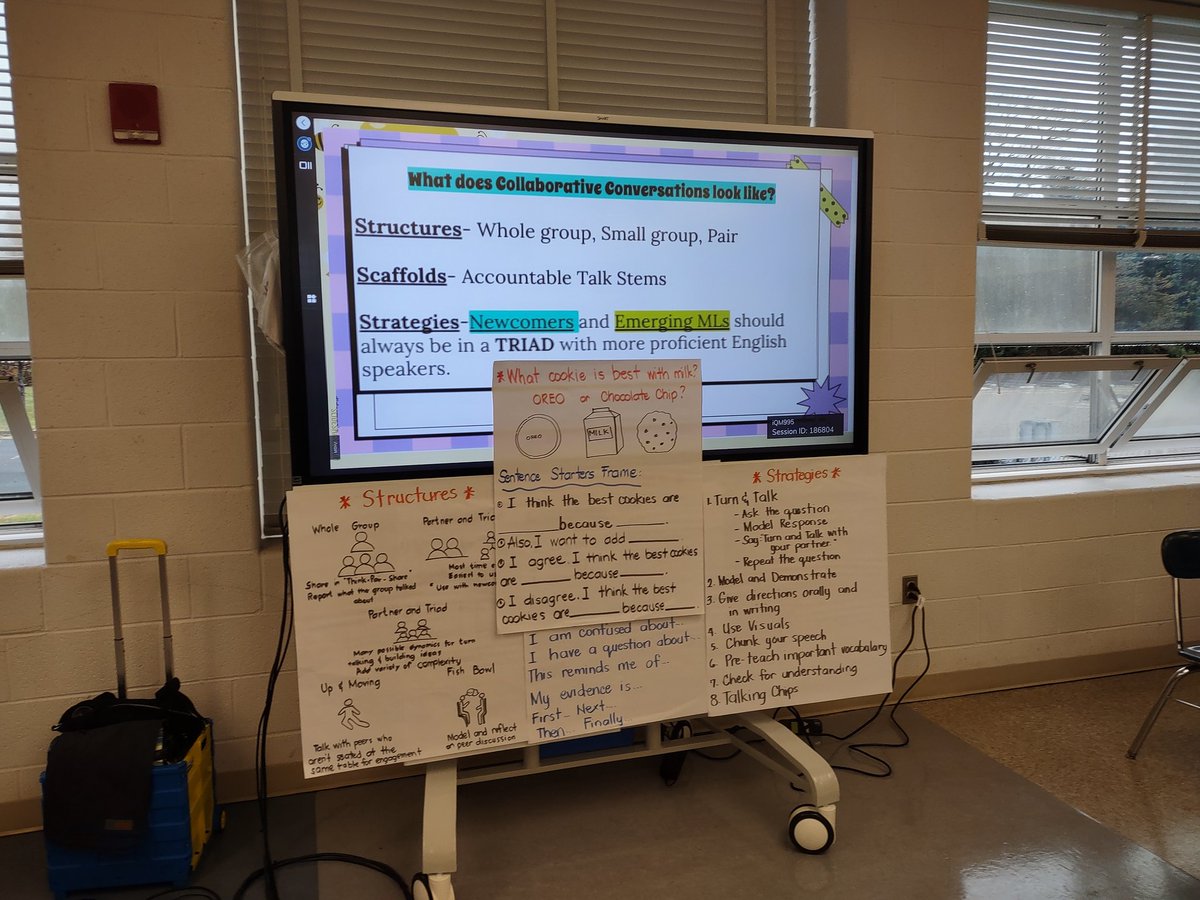 SMART
What does Collaborative Conversations look like?
Structures- Whole group, Small group, Pair
Scaffolds- Accountable Talk Stems
Strategies-Newcomers and Emerging MLs should
always be in a TRIAD with more proficient English
speakers.
iQM995
Session ID: 186804
*What cookie is best with milk?
OREO or Chocolate Chip?
OREO
MILK
Sentence Starters Frame:
I think the best cookies are
_____because _____.
Also, I want to add _____.
I agree. I think the best cookies
are _____ because_____.
I disagree. I think the best
cookies are_____ because_____.
* Structures *
Whole Group
Share in "Think-Pair-Share"
Report what the group talked
about
Partner and Triad
Most time
"Use with
Partner and Triad
Many possible dynamics for turn
talking & building ideas
Add variety of complexity
Up & Moving
Talk with peers who
aren't seated at the
same table for engagement
Fish Bowl
Model and reflect
on peer discussion
I am confused about...
I have a question about...
This reminds me of...
My evidence is...
First... Next...
Then... Finally...
* Strategies *
1. Turn & Talk
- Ask the question
- Model Response
- Say "Turn and Talk with
your partner"
- Repeat the question
2. Model and Demonstrate
3. Give directions orally and
in writing
4. Use Visuals
5. Chunk your speech
6. Pre-teach important vocabulary
7. Check for understanding
8. Talking Chips